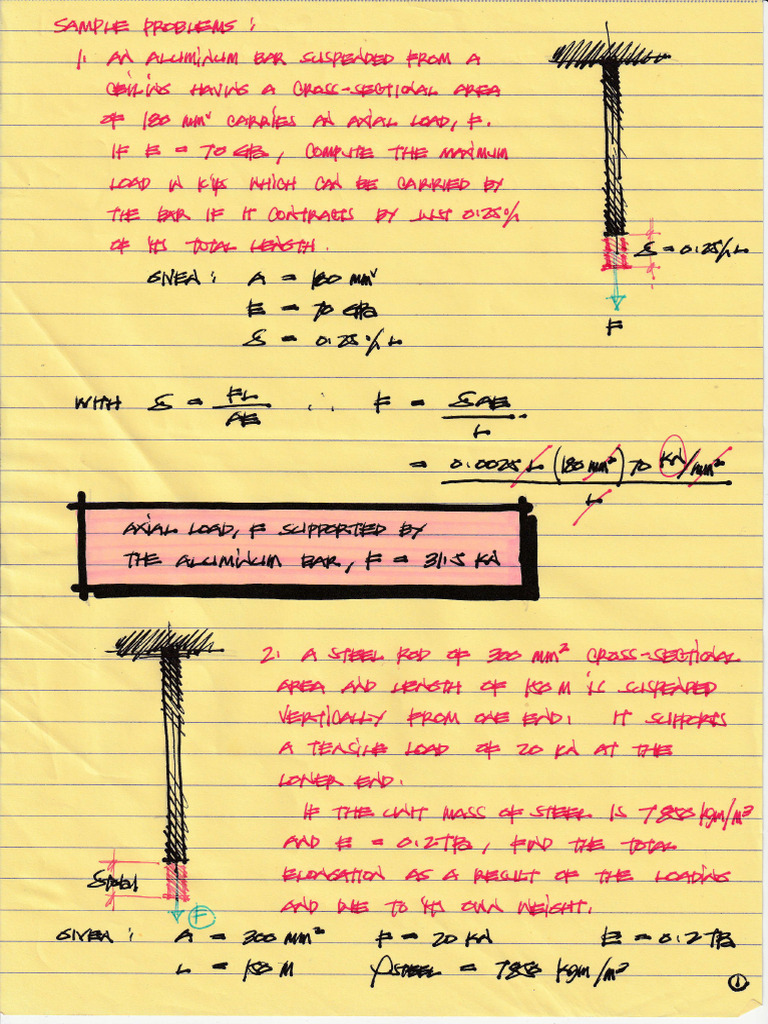 SAMPLE PROBLEMS:
1. AN ALUMINUM BAR SUSPENDED FROM A
CEILING HAVING A CROSS-SECTIONAL AREA
OF 180 mm² CARRIES AN AXIAL LOAD, F.
IF E = 70 GPa, COMPUTE THE MAXIMUM
LOAD IN KIPS WHICH CAN BE CARRIED BY
THE BAR IF IT CONTRACTS BY JUST 0.25%
OF ITS TOTAL LENGTH.
δ = 0.25% L
F
GIVEN: A = 180 mm²
E = 70 GPa
δ = 0.25% L
WITH δ = FL/AE ∴ F = δAE/L
= 0.0025 L (180 mm²) 70 KN/mm² / L
AXIAL LOAD, F SUPPORTED BY
THE ALUMINUM BAR, F = 31.5 KN
2. A STEEL ROD OF 300 mm² CROSS-SECTIONAL
AREA AND LENGTH OF 150 M IS SUSPENDED
VERTICALLY FROM ONE END. IT SUPPORTS
A TENSILE LOAD OF 20 KN AT THE
LOWER END.
IF THE UNIT MASS OF STEEL IS 7850 kgm/m³
AND E = 0.2 TPa, FIND THE TOTAL
ELONGATION AS A RESULT OF THE LOADING
AND DUE TO ITS OWN WEIGHT.
δtotal
F
GIVEN: A = 300 mm² F = 20 KN E = 0.2 TPa
L = 150 M ρSTEEL = 7850 kgm/m³
1